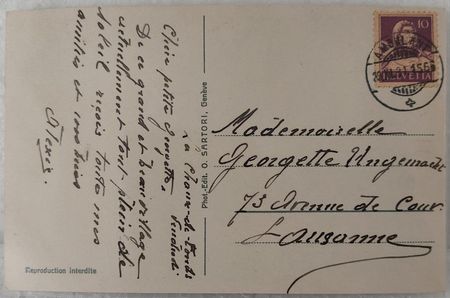 Chère petite Georgette,
La Chaux-de-Fonds
Vendredi
De ce grand et beau village
actuellement tout plein de
soleil reçois toutes mes
amitiés et mes bises
Alexis.
Reproduction interdite
Phot.-Edit. O. SARTORI, Genève
10
HELVETIA
Mademoiselle
Georgette Ungemacht
73 Avenue de Cour.
Lausanne